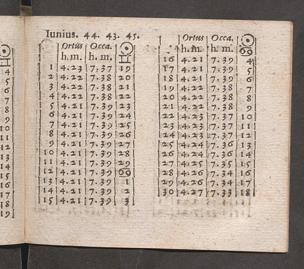 Iunius. 44. 43. 45.
Ortus Occa. ☉
h. m. h. m. ♊
1 4.23 7.37 19
2 4.22 7.38 20
3 4.22 7.38 21
4 4.22 7.38 22
5 4.22 7.38 23
6 4.21 7.39 24
7 4.21 7.39 25
8 4.21 7.39 26
9 4.21 7.39 27
10 4.21 7.39 28
11 4.21 7.39 29
12 4.21 7.39 ♋
13 4.21 7.39 1
14 4.21 7.39 2
15 4.21 7.39 3
Ortus Occa. ☉
h. m. h. m. ♋
16 4.21 7.39 4
17 4.21 7.39 5
18 4.21 7.39 6
19 4.22 7.38 7
20 4.22 7.38 8
21 4.22 7.38 9
22 4.23 7.37 10
23 4.23 7.37 11
24 4.23 7.37 12
25 4.24 7.36 13
26 4.24 7.36 14
27 4.25 7.35 15
28 4.26 7.34 16
29 4.26 7.34 17
30 4.27 7.33 18